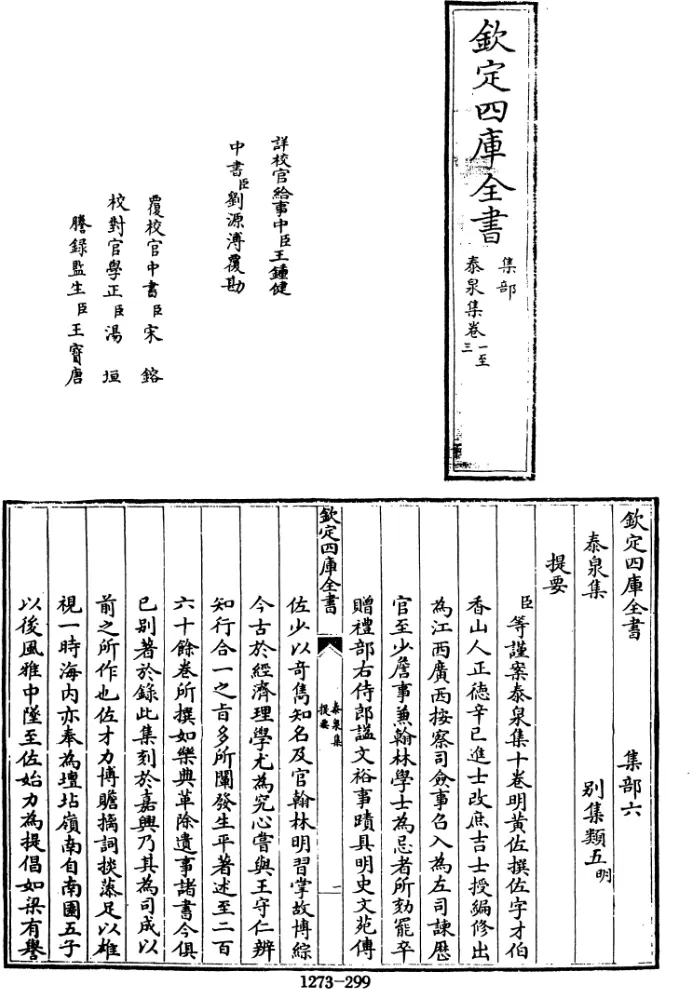 欽定四庫全書
集部
泰泉集卷一至三
詳校官給事中臣王鍾健
中書臣劉源溥覆勘
覆校官中書臣宋鎔
校對官學正臣湯垣
謄錄監生臣王寶唐
欽定四庫全書 集部六
泰泉集 別集類五明
提要
臣等謹案泰泉集十卷明黃佐撰佐字才伯
香山人正德辛巳進士改庶吉士授編修出
為江西廣西按察司僉事召入為左司諫歴
官至少詹事兼翰林學士為忌者所劾罷卒
贈禮部右侍郎諡文裕事蹟具明史文苑傳
欽定四庫全書
泰泉集
提要
一
佐少以奇雋知名及官翰林明習掌故博綜
今古於經濟理學尤為究心嘗與王守仁辨
知行合一之旨多所闡發生平著述至二百
六十餘卷所撰如樂典革除遺事諸書今俱
已別著於錄此集刻於嘉興乃其為司成以
前之所作也佐才力博贍摛詞掞藻足以雄
視一時海內亦奉為壇坫嶺南自南園五子
以後風雅中墜至佐始力為提倡如梁有譽
1273-299